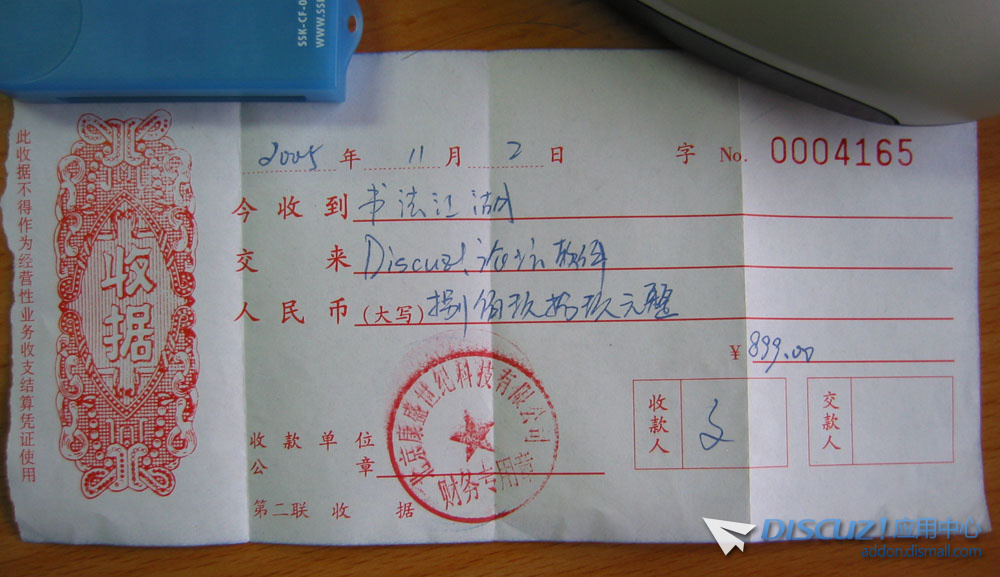 SSK-CF-0
WWW.SSK
此收据不得作为经营性业务收支结算凭证使用
收据
2005 年 11 月 2 日 字 No. 0004165
今收到 书法江湖
交来 Discuz!论坛软件
人民币(大写)捌佰玖拾玖元整
¥899.00
收款单位
公章
北京康盛世纪科技有限公司
财务专用章
收款人
交款人
第二联 收据
DISCUZ!应用中心
addon.dismall.com